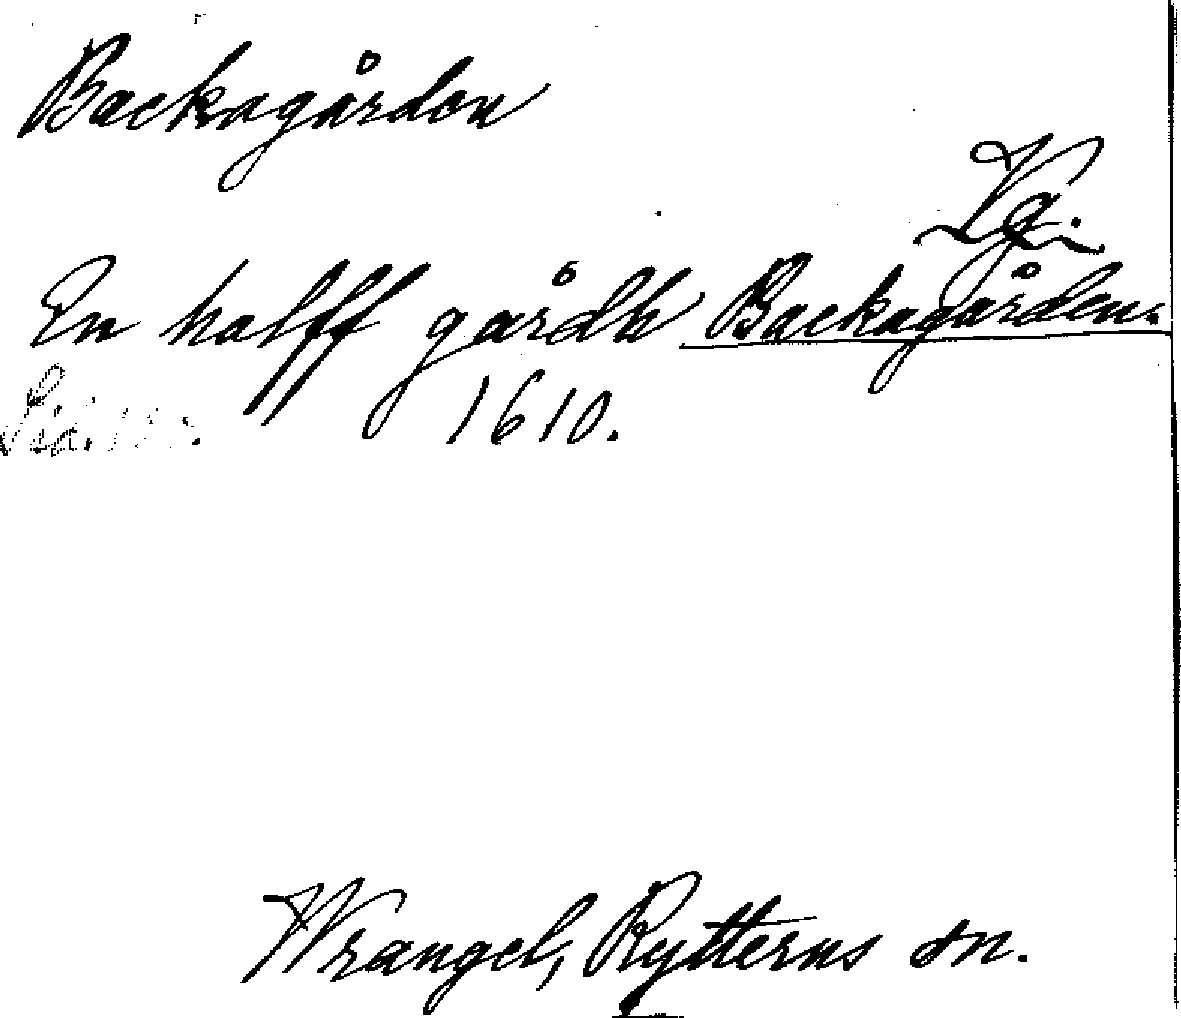 Backagården
Vg.
En halff gårdh Backagården.
Sid.
1610.
Wrangel, Rytterns sn.